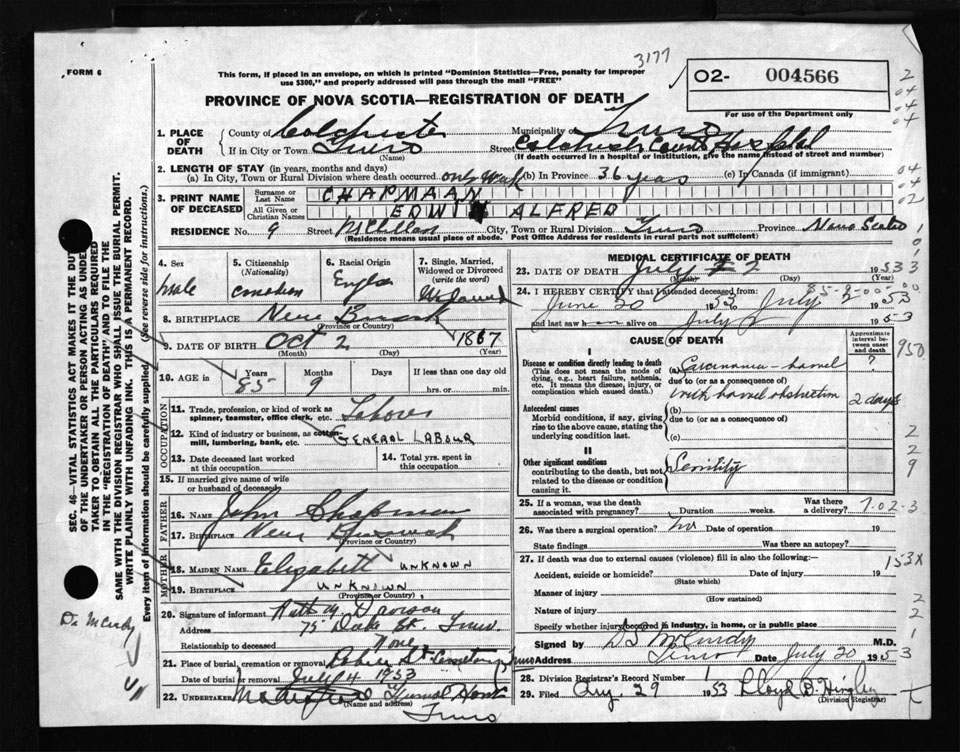 3177
FORM 6
This form, if placed in an envelope, on which is printed "Dominion Statistics—Free, penalty for improper
use $300," and properly addressed will pass through the mail "FREE"
O2- 004566
For use of the Department only
PROVINCE OF NOVA SCOTIA—REGISTRATION OF DEATH
1. PLACE OF DEATH
County of Colchester Municipality of Truro
If in City or Town Truro Street Colchester County Hospital
(Name) (If death occurred in a hospital or institution, give the name instead of street and number)
2. LENGTH OF STAY (in years, months and days)
(a) In City, Town or Rural Division where death occurred one week (b) In Province 36 years (c) In Canada (if immigrant)
3. PRINT NAME OF DECEASED
Surname or Last Name CHAPMAAN
All Given or Christian Names EDWIN ALFRED
RESIDENCE No. 9 Street McCullam City, Town or Rural Division Truro Province Nova Scotia
(Residence means usual place of abode. Post Office Address for residents in rural parts not sufficient)
4. Sex Male
5. Citizenship (Nationality) Canadian
6. Racial Origin English
7. Single, Married, Widowed or Divorced (write the word) Widowed
8. BIRTHPLACE New Brunswick
(Province or Country)
9. DATE OF BIRTH Oct 2 1867
(Month) (Day) (Year)
10. AGE in Years Months Days If less than one day old
85 9 hrs. or min.
OCCUPATION
11. Trade, profession, or kind of work as spinner, teamster, office clerk, etc. Laborer
12. Kind of industry or business, as cotton mill, lumbering, bank, etc. GENERAL LABOUR
13. Date deceased last worked at this occupation
14. Total yrs. spent in this occupation
15. If married give name of wife or husband of deceased
FATHER
16. NAME John Chapman
17. BIRTHPLACE New Brunswick
(Province or Country)
MOTHER
18. MAIDEN NAME Elizabeth UNKNOWN
19. BIRTHPLACE UNKNOWN
(Province or Country)
20. Signature of informant Ruth M Davison
Address 75 Dale St. Truro
Relationship to deceased None
21. Place of burial, cremation or removal Robie St. Cemetery, Truro
Date of burial or removal July 4 1953
22. UNDERTAKER Funeral Home
(Name and address)
Truro
MEDICAL CERTIFICATE OF DEATH
23. DATE OF DEATH July 2 1953
(Month) (Day) (Year)
85-9-00-00
24. I HEREBY CERTIFY that I attended deceased from:
June 20 1953 July 2 1953
and last saw h alive on July 2 1953
CAUSE OF DEATH
Approximate interval between onset and death
I
Disease or condition directly leading to death
(This does not mean the mode of dying, e.g., heart failure, asthenia, etc. It means the disease, injury, or complication which caused death.)
(a) Carcinoma - bowel ?
due to (or as a consequence of)
with bowel obstruction 2 days
Antecedent causes
Morbid conditions, if any, giving rise to the above cause, stating the underlying condition last.
(b)
due to (or as a consequence of)
(c)
II
Other significant conditions
contributing to the death, but not related to the disease or condition causing it.
Senility
25. If a woman, was the death associated with pregnancy? Duration weeks. Was there a delivery?
7-02-3
26. Was there a surgical operation? no Date of operation 19
State findings Was there an autopsy?
27. If death was due to external causes (violence) fill in also the following:—
153X
Accident, suicide or homicide? Date of injury 19
(State which)
Manner of injury
(How sustained)
Nature of injury
Specify whether injury occurred in industry, in home, or in public place
Signed by D S McCurdy M.D.
Address Truro Date July 20 1953
28. Division Registrar's Record Number
29. Filed Aug. 29 1953 Lloyd B. Hingley
(Division Registrar)
SEC. 46—VITAL STATISTICS ACT MAKES IT THE DUTY
OF THE UNDERTAKER OR PERSON ACTING AS UNDERTAKER
TAKER TO OBTAIN ALL THE PARTICULARS REQUIRED
IN THE "REGISTRATION OF DEATH" AND TO FILE THE
SAME WITH THE DIVISION REGISTRAR WHO SHALL ISSUE THE BURIAL PERMIT.
WRITE PLAINLY WITH UNFADING INK. THIS IS A PERMANENT RECORD.
Every item of information should be carefully supplied. (See reverse side for instructions.)
Dr McCurdy
950